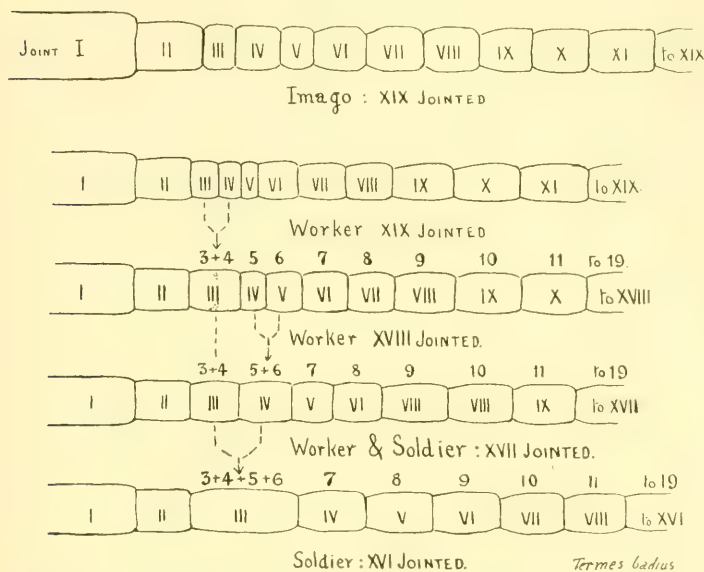 JOINT I II III IV V VI VII VIII IX X XI to XIX
Imago : XIX JOINTED
I II III IV V VI VII VIII IX X XI to XIX.
Worker XIX JOINTED
3+4 5 6 7 8 9 10 11 to 19.
I II III IV V VI VII VIII IX X to XVIII
Worker XVIII JOINTED.
3+4 5+6 7 8 9 10 11 to 19
I II III IV V VI VIII VIII IX to XVII
Worker & Soldier : XVII JOINTED.
3+4+5+6 7 8 9 10 11 to 19
I II III IV V VI VII VIII to XVI
Soldier : XVI JOINTED.
Termes badius